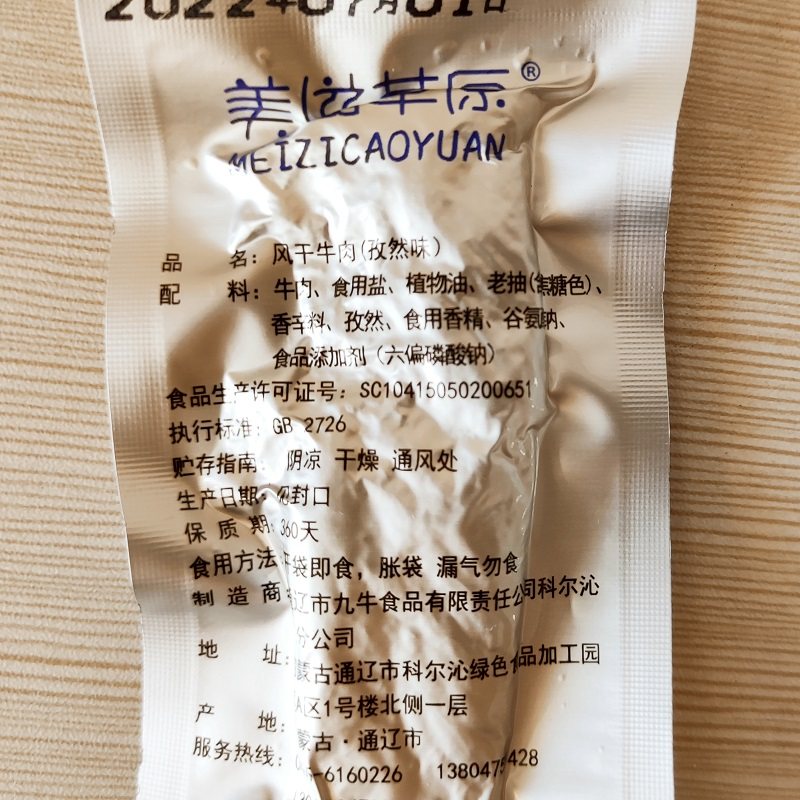 2022年07月01日
美滋草原®
MEIZICAOYUAN
品 名：风干牛肉(孜然味)
配 料：牛肉、食用盐、植物油、老抽(焦糖色)、
香辛料、孜然、食用香精、谷氨钠、
食品添加剂（六偏磷酸钠）
食品生产许可证号：SC10415050200651
执行标准：GB 2726
贮存指南：阴凉 干燥 通风处
生产日期：见封口
保 质 期：360天
食用方法：开袋即食，胀袋 漏气勿食
制 造 商 辽市九牛食品有限责任公司科尔沁
分公司
地 址：蒙古通辽市科尔沁绿色食品加工园
A区1号楼北侧一层
产 地：蒙古·通辽市
服务热线： -6160226